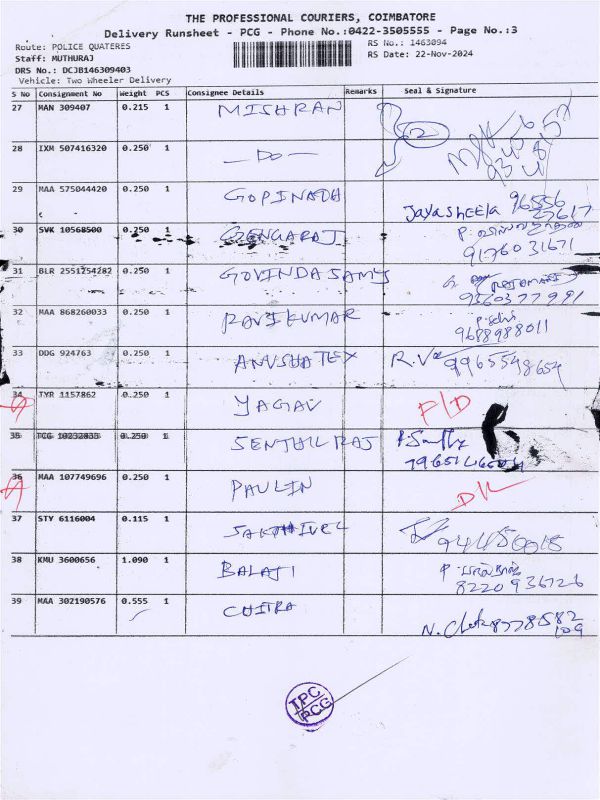 THE PROFESSIONAL COURIERS, COIMBATORE
Delivery Runsheet - PCG - Phone No.:0422-3505555 - Page No.:3
Route: POLICE QUATERES
RS No.: 1463094
Staff: MUTHURAJ
RS Date: 22-Nov-2024
DRS No.: DCJB146309403
Vehicle: Two Wheeler Delivery
S No Consignment No Weight PCS Consignee Details Remarks Seal & Signature
27 MAN 309407 0.215 1 MISHRAN
28 IXM 507416320 0.250 1 —DO—
29 MAA 575044420 0.250 1 GOPINATH Jayasheela 96556
27617
30 SVK 10568500 0.250 1 GENGARAJ
9176031671
31 BLR 2551254282 0.250 1 GOVINDASAMY
9360377991
32 MAA 868260033 0.250 1 RAVIKUMAR
9688988011
33 DDG 924763 0.250 1 ANUSHATEX 9965548654
34 TYR 1157862 0.250 1 YAGAV F/D
35 TCG 10232833 0.250 1 SENTHIL RAJ
36 MAA 107749696 0.250 1 PAULIN DL
37 STY 6116004 0.115 1 SAKTHIVEL
38 KMU 3600656 1.090 1 BALAJI
8220936726
39 MAA 302190576 0.555 1 CHITRA 8778582
109
TPC
PCG